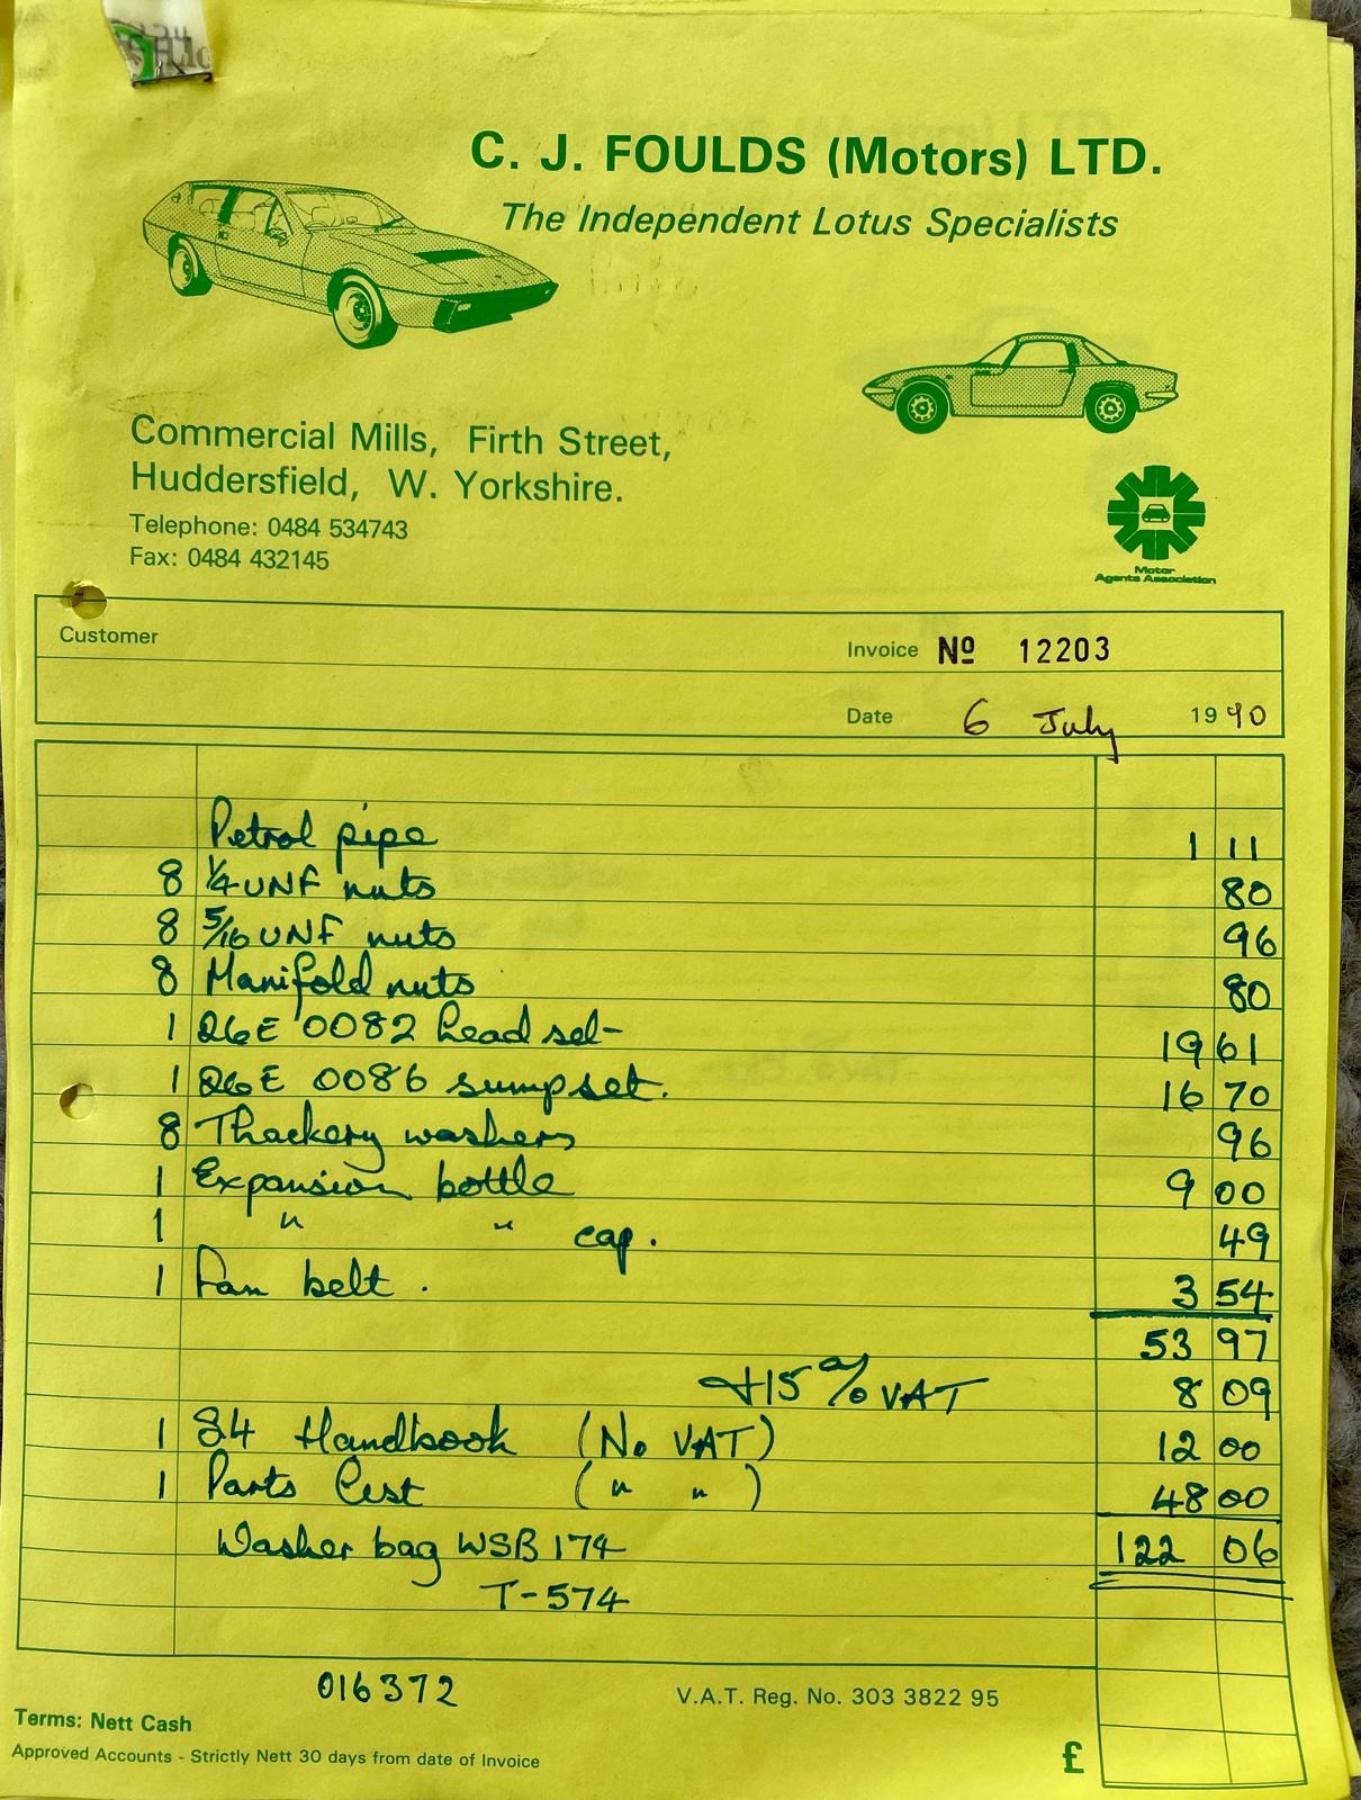 C. J. FOULDS (Motors) LTD.
The Independent Lotus Specialists
Commercial Mills, Firth Street,
Huddersfield, W. Yorkshire.
Telephone: 0484 534743
Fax: 0484 432145
Motor
Agents Association
Customer
Invoice Nº 12203
Date 6 July 1990
Petrol pipe 1 11
8 1/4 UNF nuts 80
8 5/16 UNF nuts 96
8 Manifold nuts 80
1 026E 0082 head set 19 61
1 026E 0086 sump set. 16 70
8 Thackery washers 96
1 Expansion bottle 9 00
1 " " cap. 49
1 Fan belt. 3 54
53 97
+15% VAT 8 09
1 S4 Handbook (No VAT) 12 00
1 Parts List ( " " ) 48 00
Washer bag WSB 174 122 06
T-574
016372
V.A.T. Reg. No. 303 3822 95
Terms: Nett Cash
Approved Accounts - Strictly Nett 30 days from date of Invoice
£